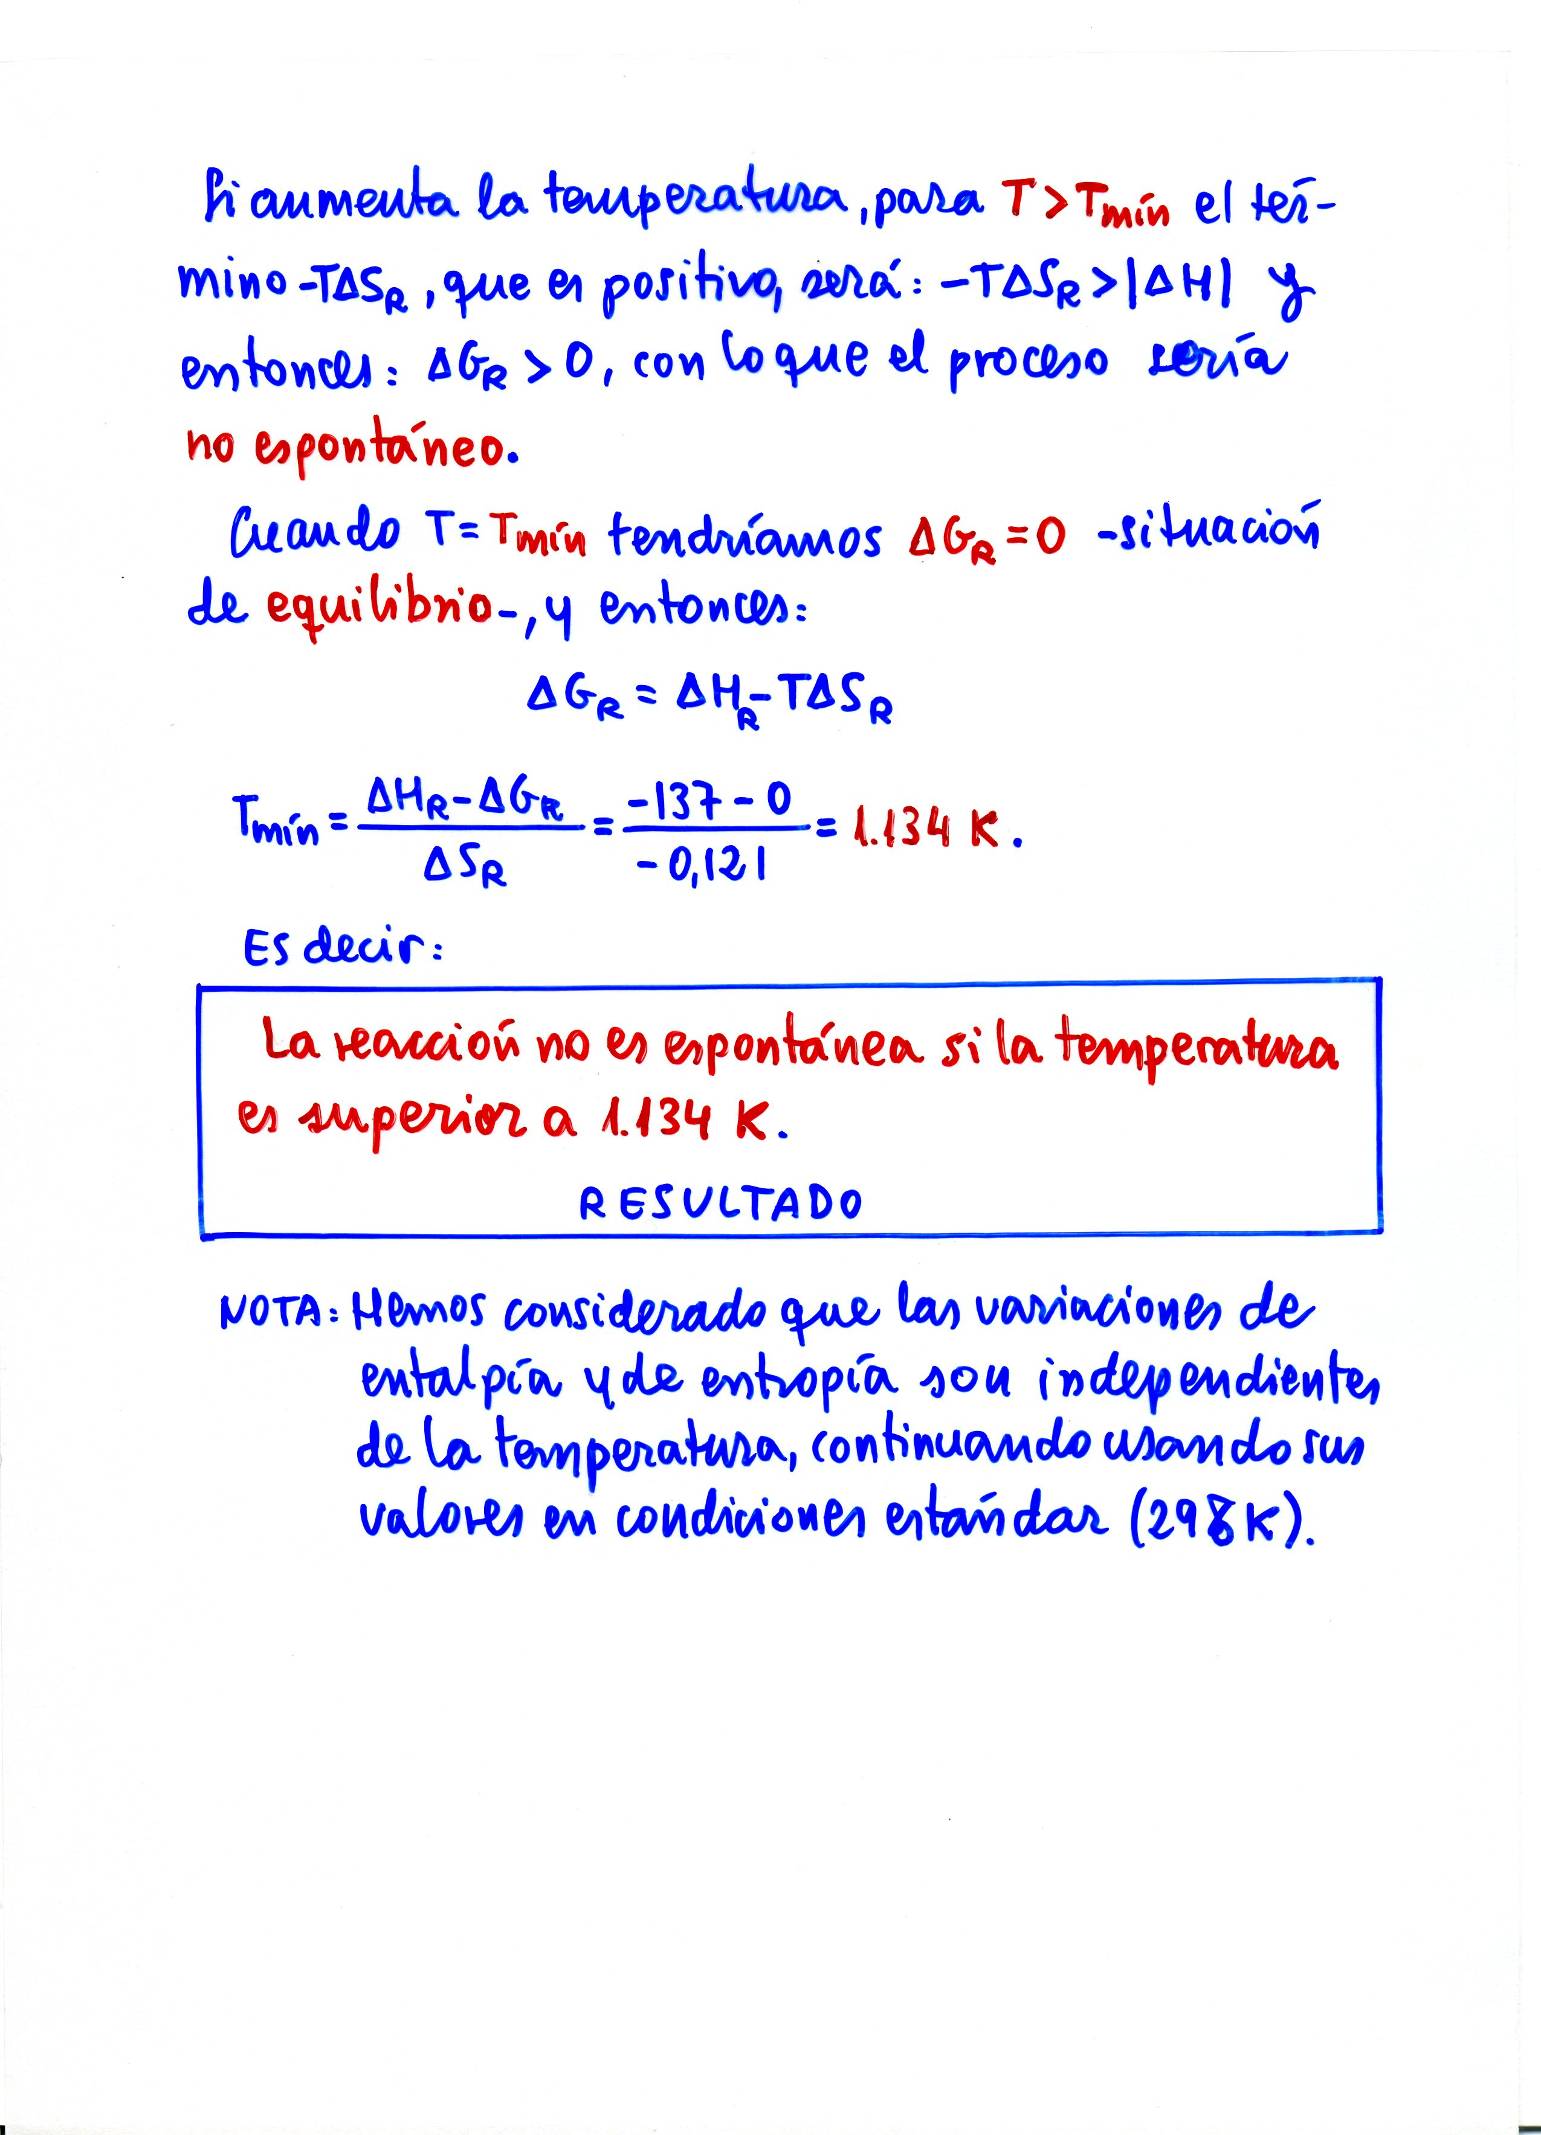 Si aumenta la temperatura, para T > Tmín el tér-
mino -TΔSR, que es positivo, será: -TΔSR > |ΔH| y
entonces: ΔGR > 0, con lo que el proceso sería
no espontáneo.
Cuando T = Tmín tendríamos ΔGR = 0 -situación
de equilibrio-, y entonces:
ΔGR = ΔHR - TΔSR
Tmín = (ΔHR - ΔGR)/ΔSR = (-137 - 0)/(-0,121) = 1.134 K.
Es decir:
La reacción no es espontánea si la temperatura
es superior a 1.134 K.
RESULTADO
NOTA: Hemos considerado que las variaciones de
entalpía y de entropía son independientes
de la temperatura, continuando usando sus
valores en condiciones estándar (298 K).